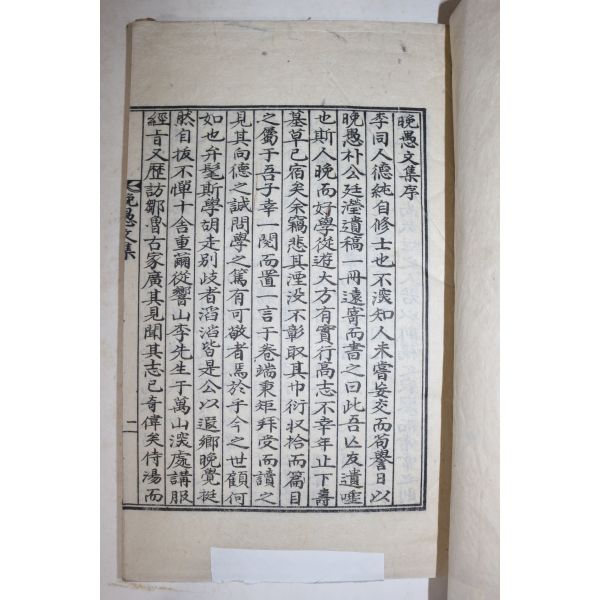 晩愚文集序
李同人德純自修士也不深知人未嘗妄交而茍譽日以
晩愚朴公廷瀅遺稿一冊遠寄而書之曰此吾亡友遺唾
也斯人晩而好學從遊大方有實行高志不幸年止下壽
墓草已宿矣余竊悲其湮没不彰取其巾衍収拾而篇目
之屬于吾子幸一閱而置一言于卷端秉矩拜受而讀之
見其向德之誠問學之篤有可敬者焉於乎今之世顧何
如也弁髦斯學胡走別歧者滔滔皆是公以遐鄉晩覺挺
然自拔不憚十舍重繭從響山李先生于萬山深處講服
經旨又歷訪鄒魯古家廣其見聞其志已奇偉矣侍湯而
晩愚文集
二